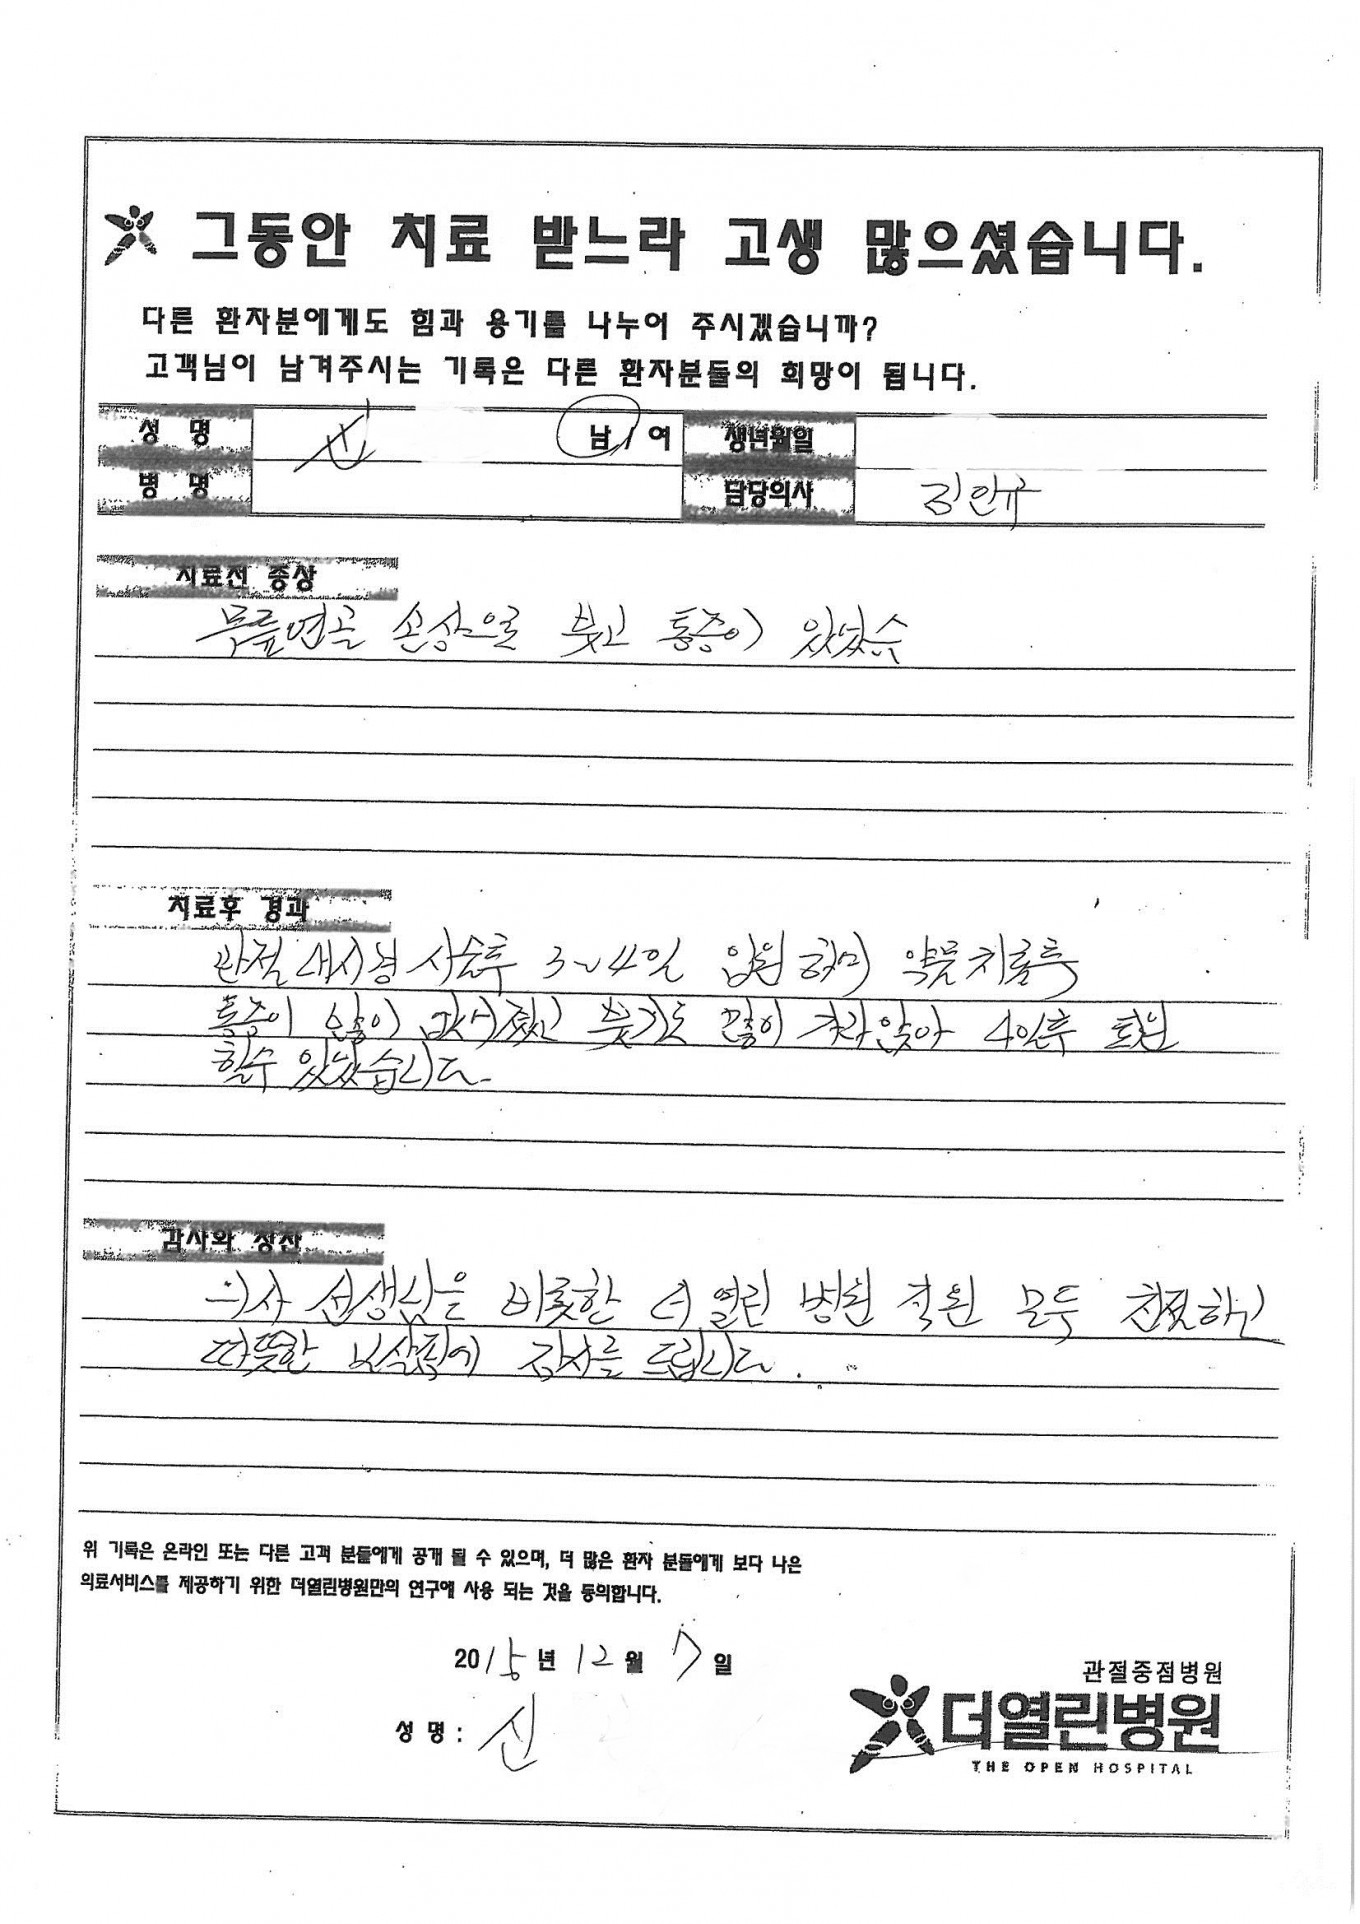 그동안 치료 받느라 고생 많으셨습니다.
다른 환자분에게도 힘과 용기를 나누어 주시겠습니까?
고객님이 남겨주시는 기록은 다른 환자분들의 희망이 됩니다.
성 명 신 남 / 여 생년월일
병 명 담당의사 김안규
치료전 증상
무릎연골 손상으로 붓고 통증이 있었습
치료후 경과
관절 내시경 시술후 3~4일 입원하며 약물치료후
통증이 많이 감소되었고 붓기도 많이 가라앉아 4일후 퇴원
할수 있었습니다.
감사와 칭찬
의사 선생님을 비롯한 더열린 병원 직원 모두 친절하고
따뜻한 보살핌에 감사를 드립니다.
위 기록은 온라인 또는 다른 고객 분들에게 공개 될 수 있으며, 더 많은 환자 분들에게 보다 나은
의료서비스를 제공하기 위한 더열린병원만의 연구에 사용 되는 것을 동의합니다.
2015년 12월 7일
성 명 : 신
관절중점병원
더열린병원
THE OPEN HOSPITAL